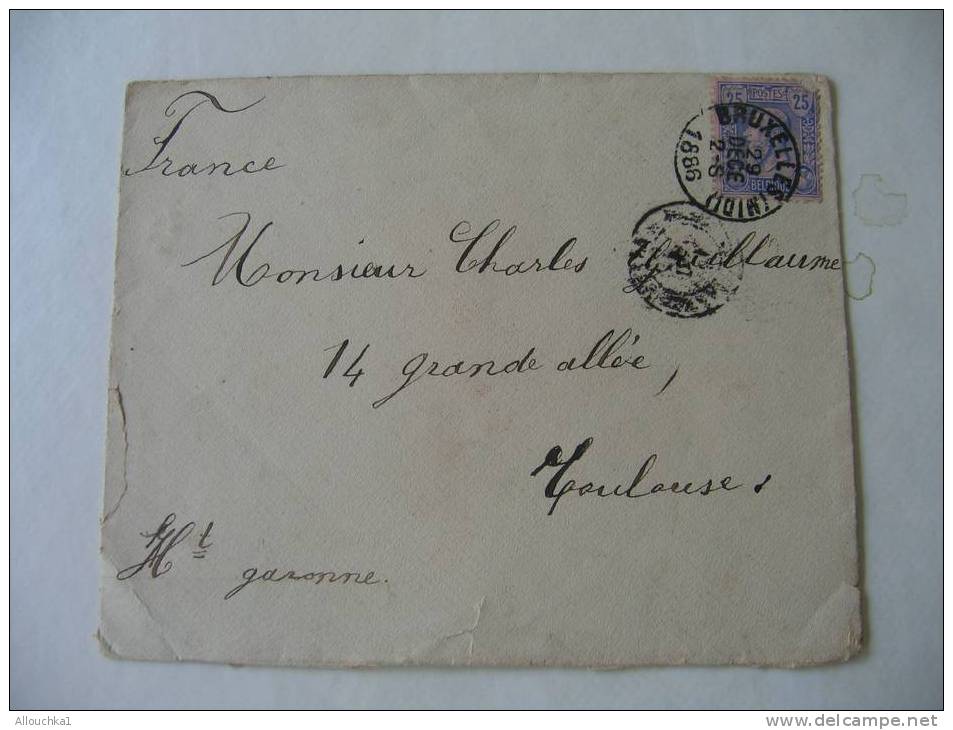 France
25 POSTES 25
BELGIQUE
BRUXELLES (MIDI)
29
DECE
2-S
1886
Monsieur Charles Guillaume
14 grande allée,
Toulouse.
Ht
garonne.
Allouchka1
www.delcampe.net